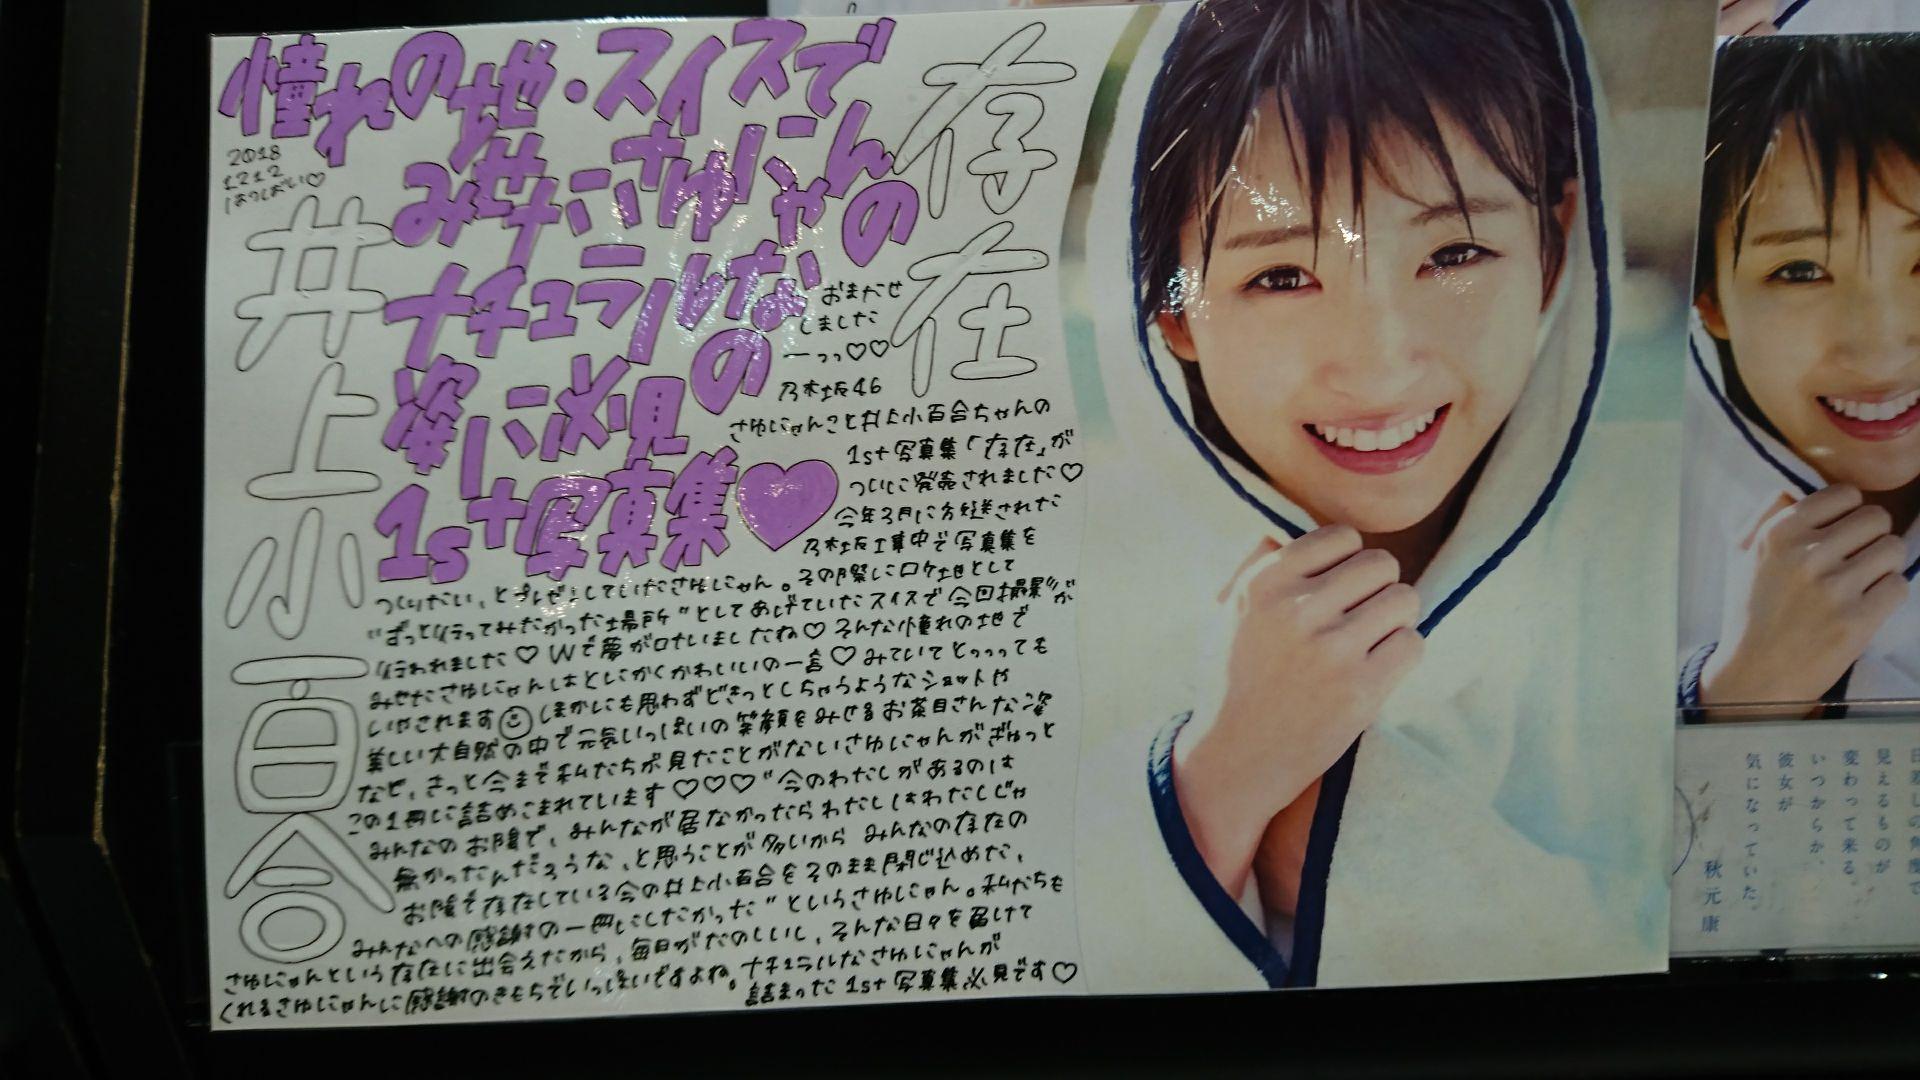 憧れの地・スイスで
みせたさゆにゃんの
ナチュラルな
姿に必見の
1st写真集♥
2018
1212
はつばい♡
存在
井上小百合
おまたせ
しました
ーっっ♡♡
乃木坂46
さゆにゃんこと井上小百合ちゃんの
1st写真集「存在」が
ついに発売されました♡
今年3月に放送された
乃木坂工事中で写真集を
つくりたい、とプレゼンしていたさゆにゃん。その際にロケ地として
"ずっと行ってみたかった場所"としてあげていたスイスで今回撮影が
行われました♡Wで夢が叶いましたね♡そんな憧れの地で
みせたさゆにゃんはとにかくかわいいの一言♡みていてとっっっても
いやされます しまかにも思わずどきっとしちゃうようなショットや
美しい大自然の中で元気いっぱいの笑顔をみせるお茶目さんな姿
など、きっと今まで私たちが見たことがないさゆにゃんがぎゅっと
この1冊に詰めこまれています♡♡♡"今のわたしがあるのは
みんなのお陰で、みんなが居なかったらわたしはわたしじゃ
無かったんだろうな、と思うことが多いから みんなの存在の
お陰で存在している今の井上小百合をそのまま閉じ込めた、
みんなへの感謝の一冊にしたかった"というさゆにゃん。私たちも
さゆにゃんという存在に出会えたから、毎日がたのしいし、そんな日々を届けて
くれるさゆにゃんに感謝のきもちでいっぱいですよね。ナチュラルなさゆにゃんが
詰まった1st写真集必見です♡
日差しの角度で
見えるものが
変わって来る。
いつからか、
彼女が
気になっていた。
秋元康